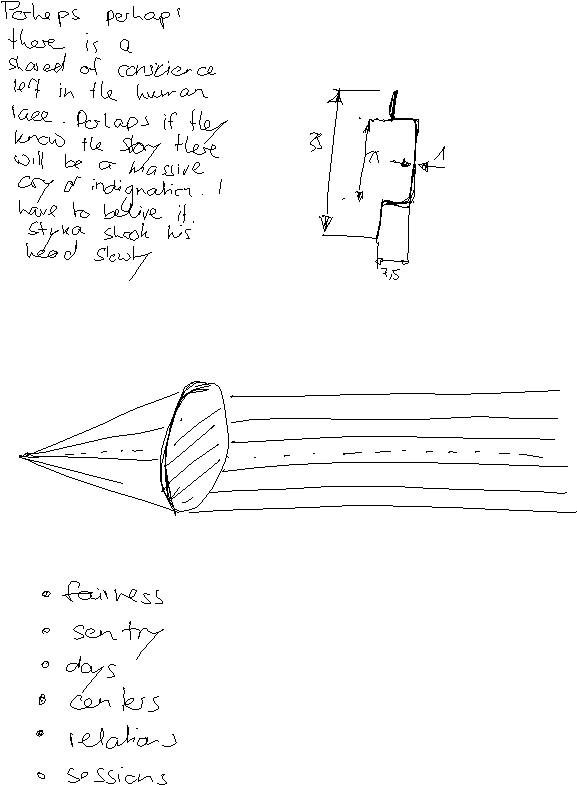 Perhaps perhaps
there is a
shared of conscience
left in the human
race. Perhaps if they
know the story there
will be a massive
cry of indignation. I
have to belive it.
Styka shook his
head slowly
1
7,5
• fairness
• sentry
• days
• centers
• relations
• sessions